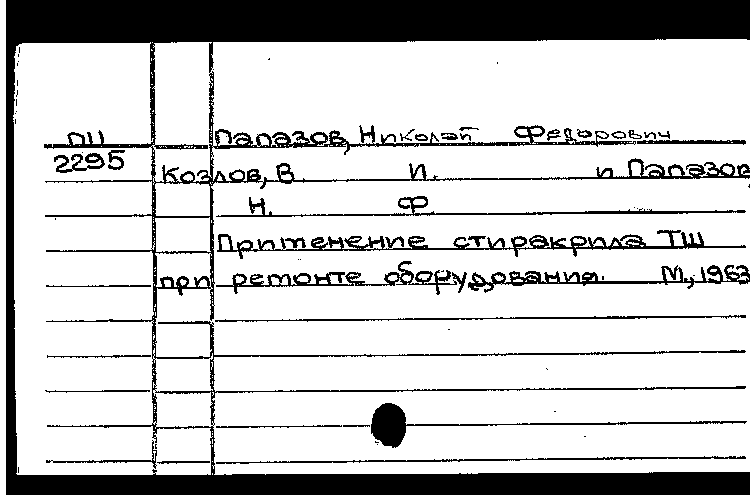 ПЦ Папазов, Николай Федорович
2295
Козлов, В. И. и Папазов,
Н. Ф
Применение стиракрила ТШ
при ремонте оборудования. М., 1963